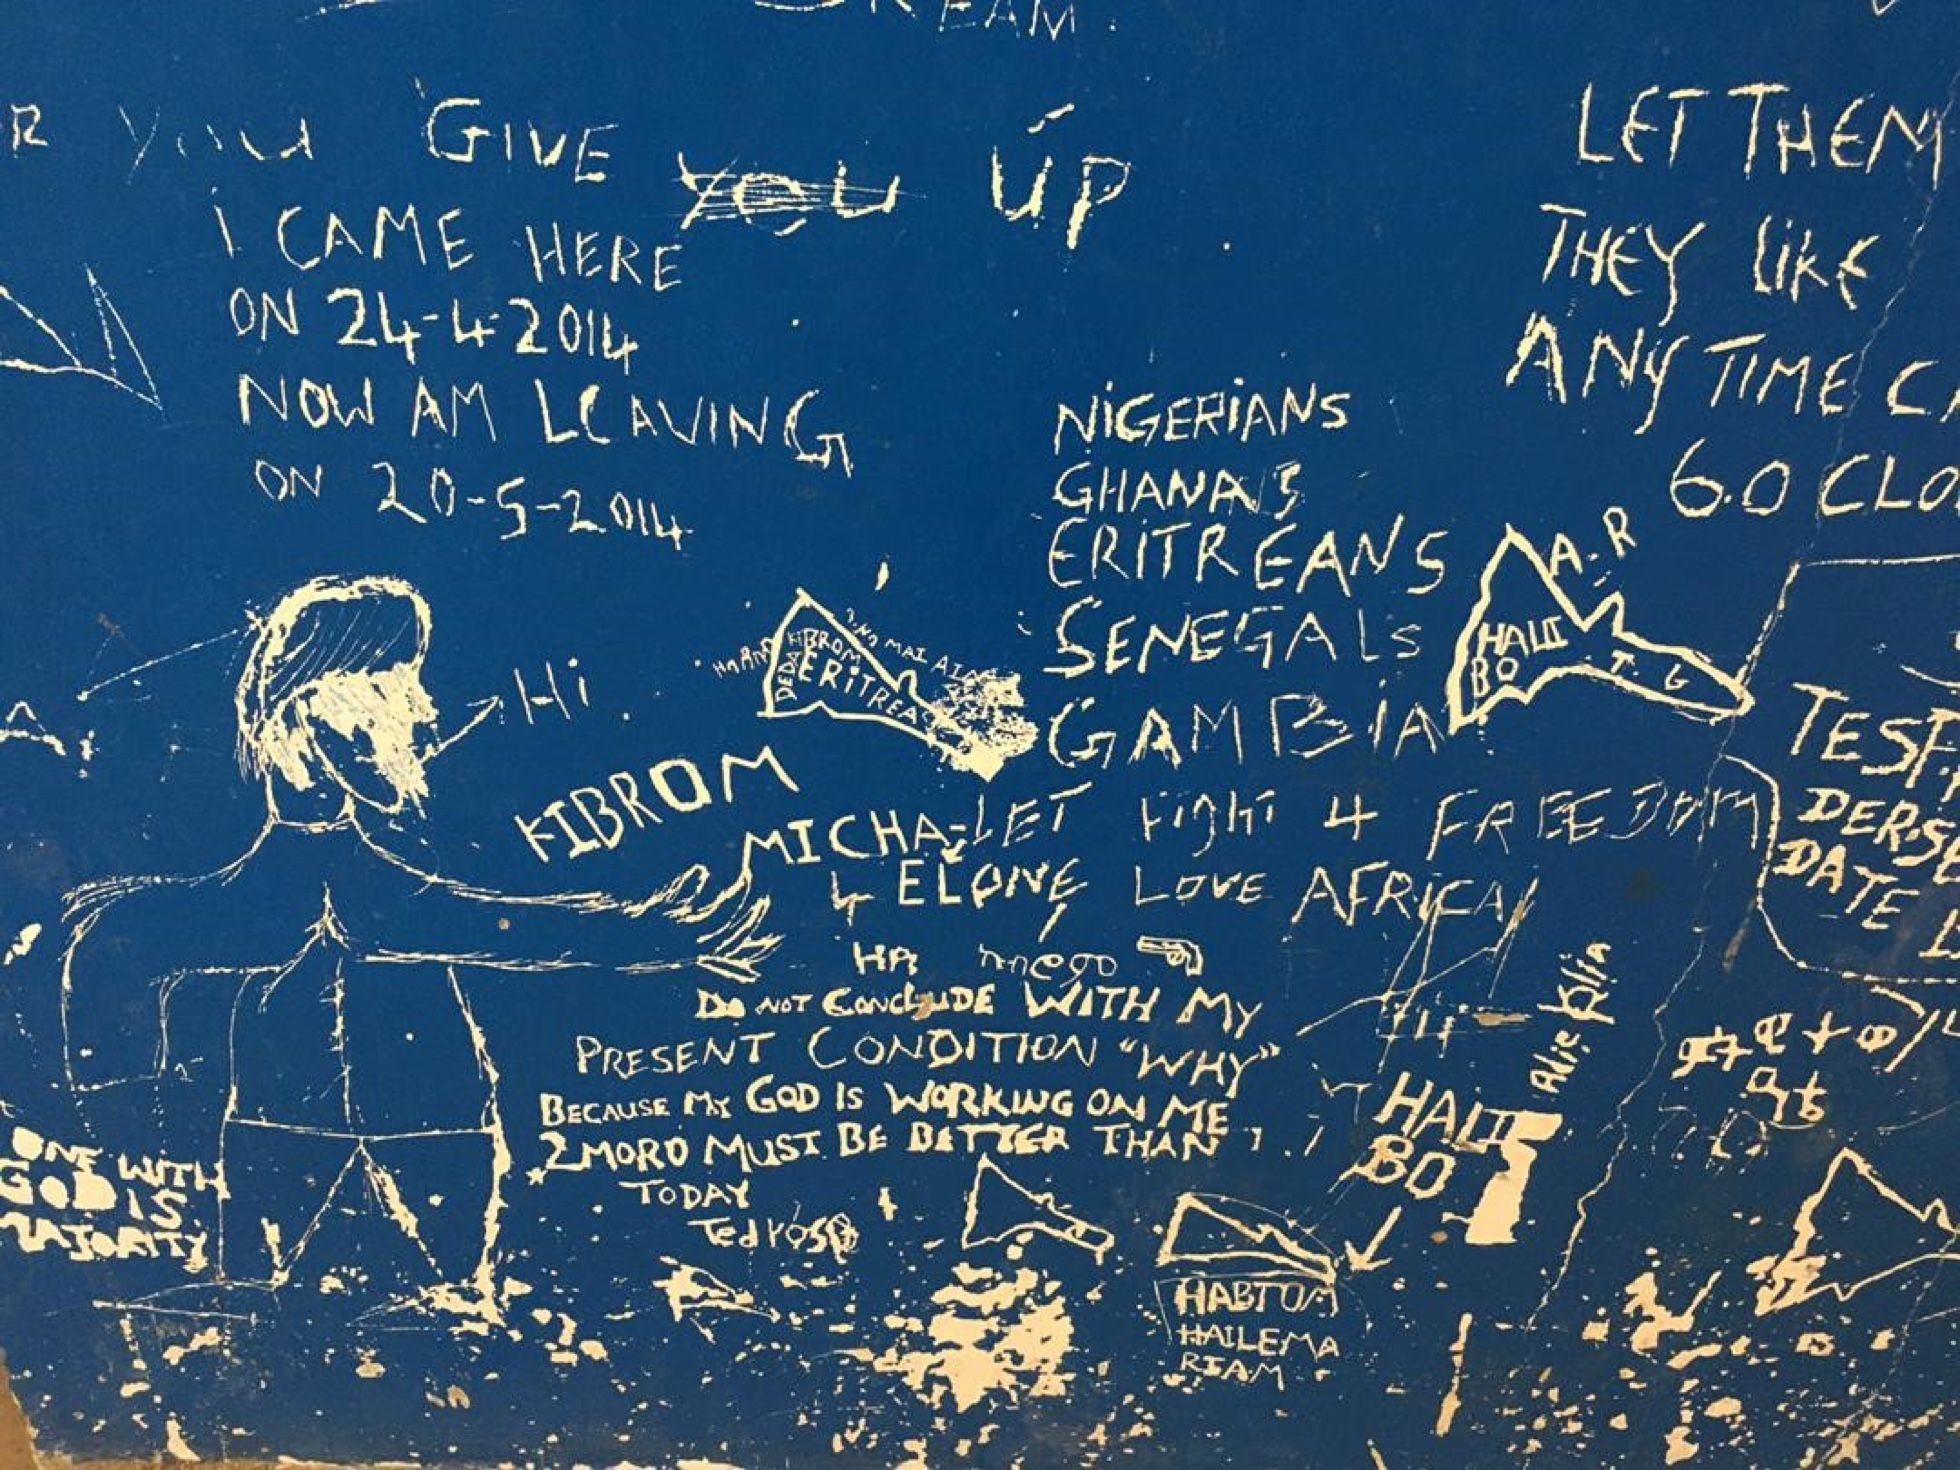 REAM.
R YOU GIVE YOU UP
I CAME HERE
ON 24-4-2014
NOW AM LEAVING
ON 20-5-2014
LET THEM
THEY LIKE
ANY TIME
6.0 CLO
NIGERIANS
GHANA'S
ERITREANS
SENEGALS
GAMBIA
LET FIGHT 4 FREEDOM
ONE LOVE AFRICA
A.R
HALI
BO
T. G
Hi
KIBROM
ERITREA
DEDA
KIBROM
MICHA-
EL
HA
DO NOT CONCLUDE WITH MY
PRESENT CONDITION "WHY"
BECAUSE MY GOD IS WORKING ON ME
2MORO MUST BE BETTER THAN
TODAY
Tedros
ONE WITH
GOD IS
MAJORITY
HALI
BO
HABTOM
HAILEMA
RIAM
TESF
DERSE
DATE